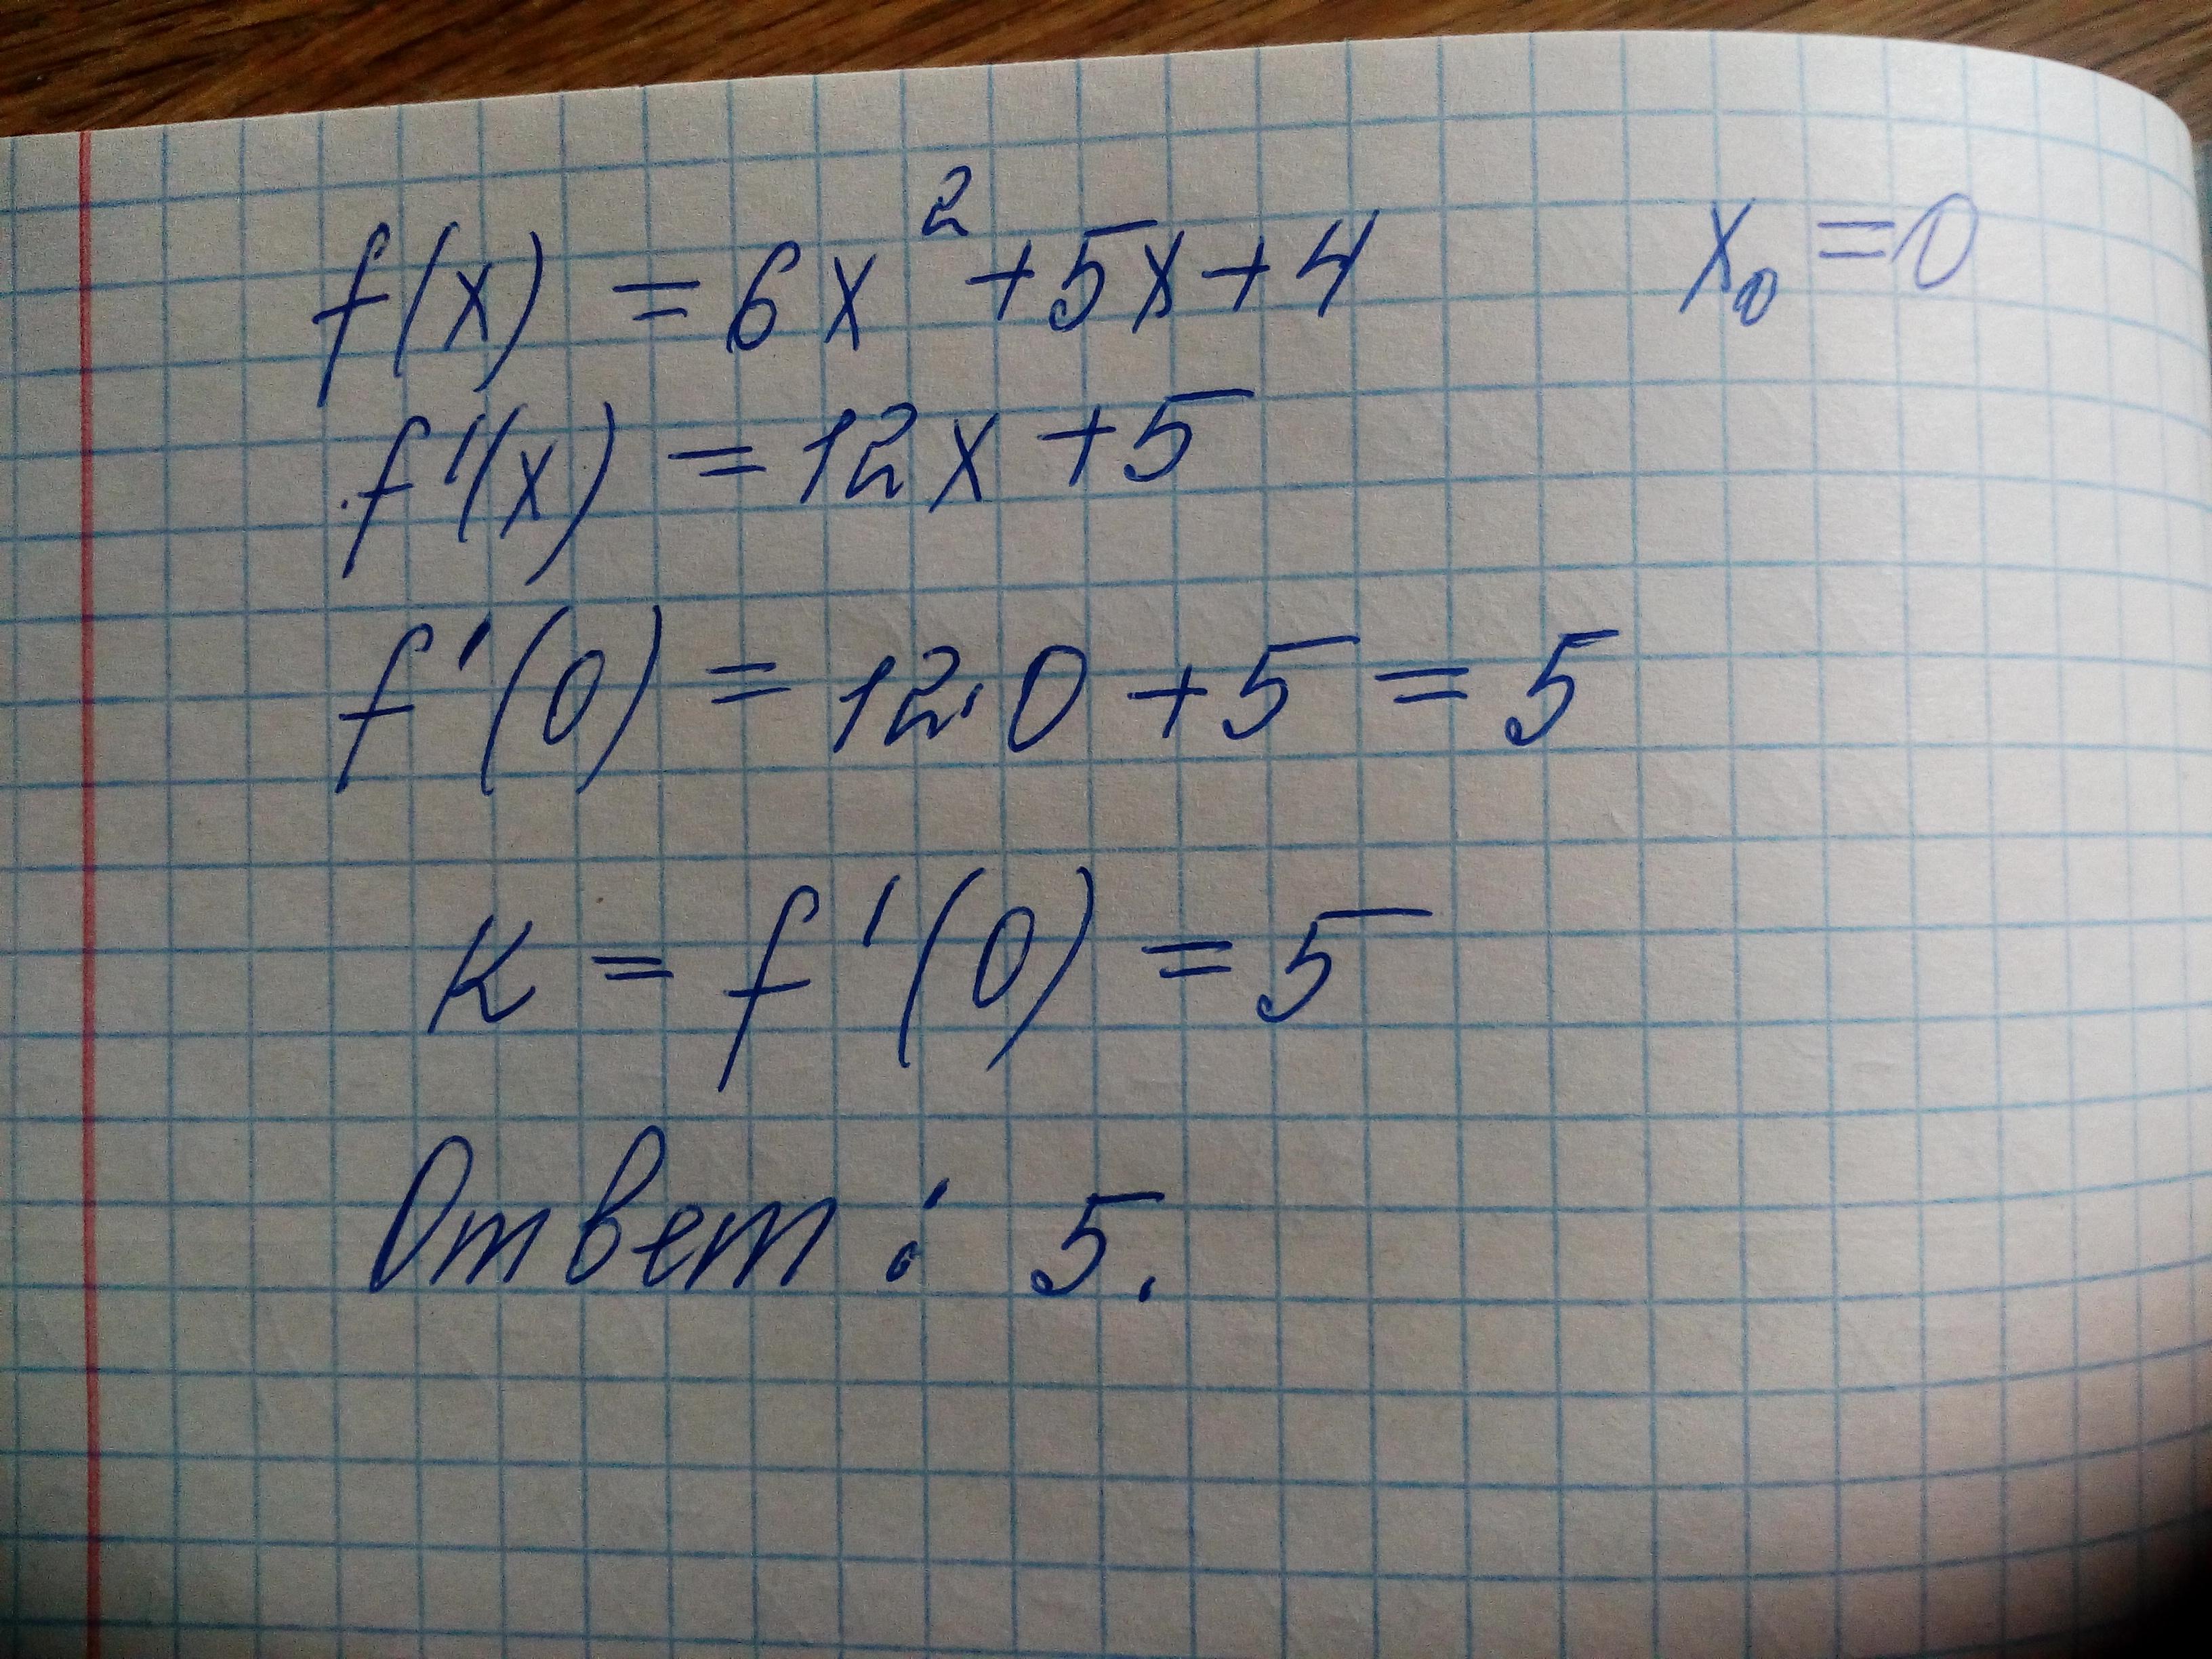 f(x) = 6x² + 5x + 4 x₀ = 0
f'(x) = 12x + 5
f'(0) = 12·0 + 5 = 5
к = f'(0) = 5
Ответ: 5.